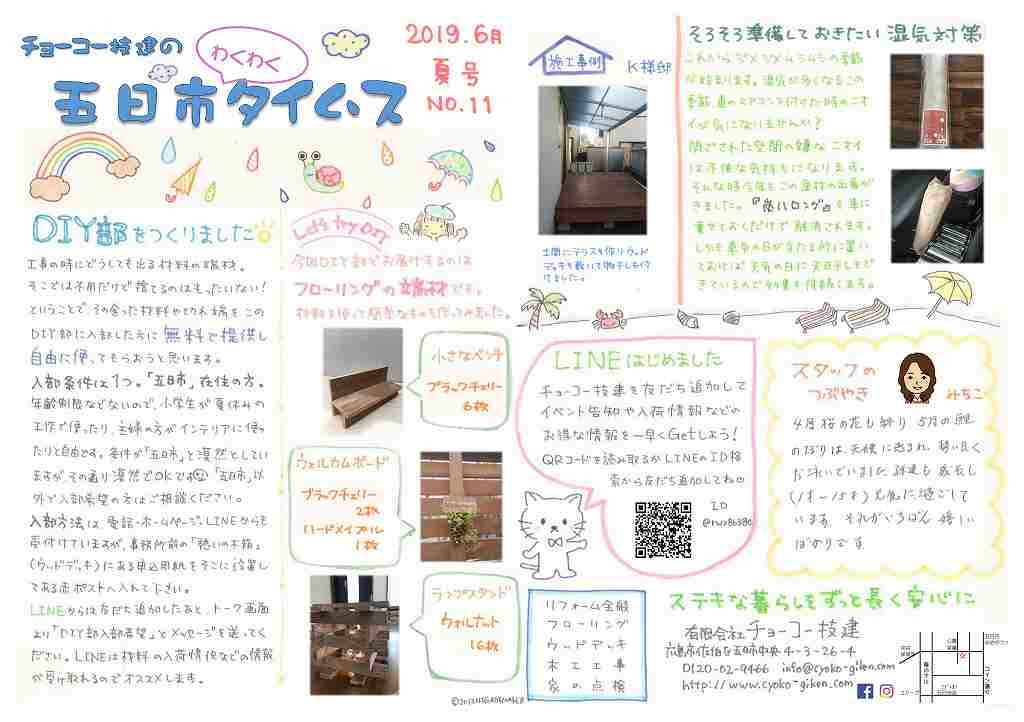 チョーコー技建の
わくわく
五日市タイムス
2019.6月
夏号
NO.11
DIY部をつくりました
工事の時にどうしても出る材料の端材。
そこでは不用だけで捨てるのはもったいない!
ということで、その余った材料や切れ端をこの
DIY部に入部した方に無料で提供し
自由に使ってもらおうと思います。
入部条件は1つ。「五日市」在住の方。
年齢制限などないので、小学生が夏休みの
工作で使ったり、主婦の方がインテリアに使っ
たりと自由です。条件が「五日市」と漠然としてい
ますが、その通り漠然でOKです 「五日市」以
外で入部希望の方はご相談ください。
入部方法は、電話・ホームページ、LINEからも
受付けていますが、事務所前の「憩いの木箱」
(ウッドデッキ)にある申込用紙をそこに設置し
てある赤ポストへ入れて下さい。
LINEからは友だち追加したあと、トーク画面
より「DIY部入部希望」とメッセージを送ってく
ださい。LINEは材料の入荷情報などの情報
が受け取れるのでオススメします。
Let's try DIY
今回DIY部でお届けするのは
フローリングの端材です。
材料を使って簡単なものを作ってみました。
小さなベンチ
ブラックチェリー
6枚
ウェルカムボード
ブラックチェリー
2枚
ハードメイプル
1枚
ランプスタンド
ウォルナット
16枚
施工事例
K様邸
土間にテラスを作りウッド
デッキを敷いて物干しも付
けました。
そろそろ準備しておきたい湿気対策
これからジメジメムシムシの季節
が始まります。湿気が多くなるこの
季節、車のエアコンを付けた時のニオ
イが気になりませんか?
閉ざされた空間の嫌なニオイ
は不快な気持ちになります。
そんな時今年もこの炭材の出番が
きました。『炭八ロング』を車に
乗せておくだけで解消されます。
しかも車中の日が当たる所に置い
ておけば天気の日に天日干しもで
きているんで効果も持続します。
LINEはじめました
チョーコー技建を友だち追加して
イベント告知や入荷情報などの
お得な情報を一早くGetしよう!
QRコードを読み取るかLINEのID検
索から友だち追加してね
ID
スタッフの
つぶやき
みちこ
4月桜の花も終り 5月の鯉
のぼりは、天候に恵まれ、勢い良く
泳いでいました
います。それがいちばん嬉しい
ばかりです
リフォーム全般
フローリング
ウッドデッキ
木工工事
家の点検
ステキな暮らしをずっと長く安心に
有限会社チョーコー技建
広島市佐伯区五日市中央4-3-26-4
0120-02-9466 info@cyoko-giken.com
http://www.cyoko-giken.com
コイン通り